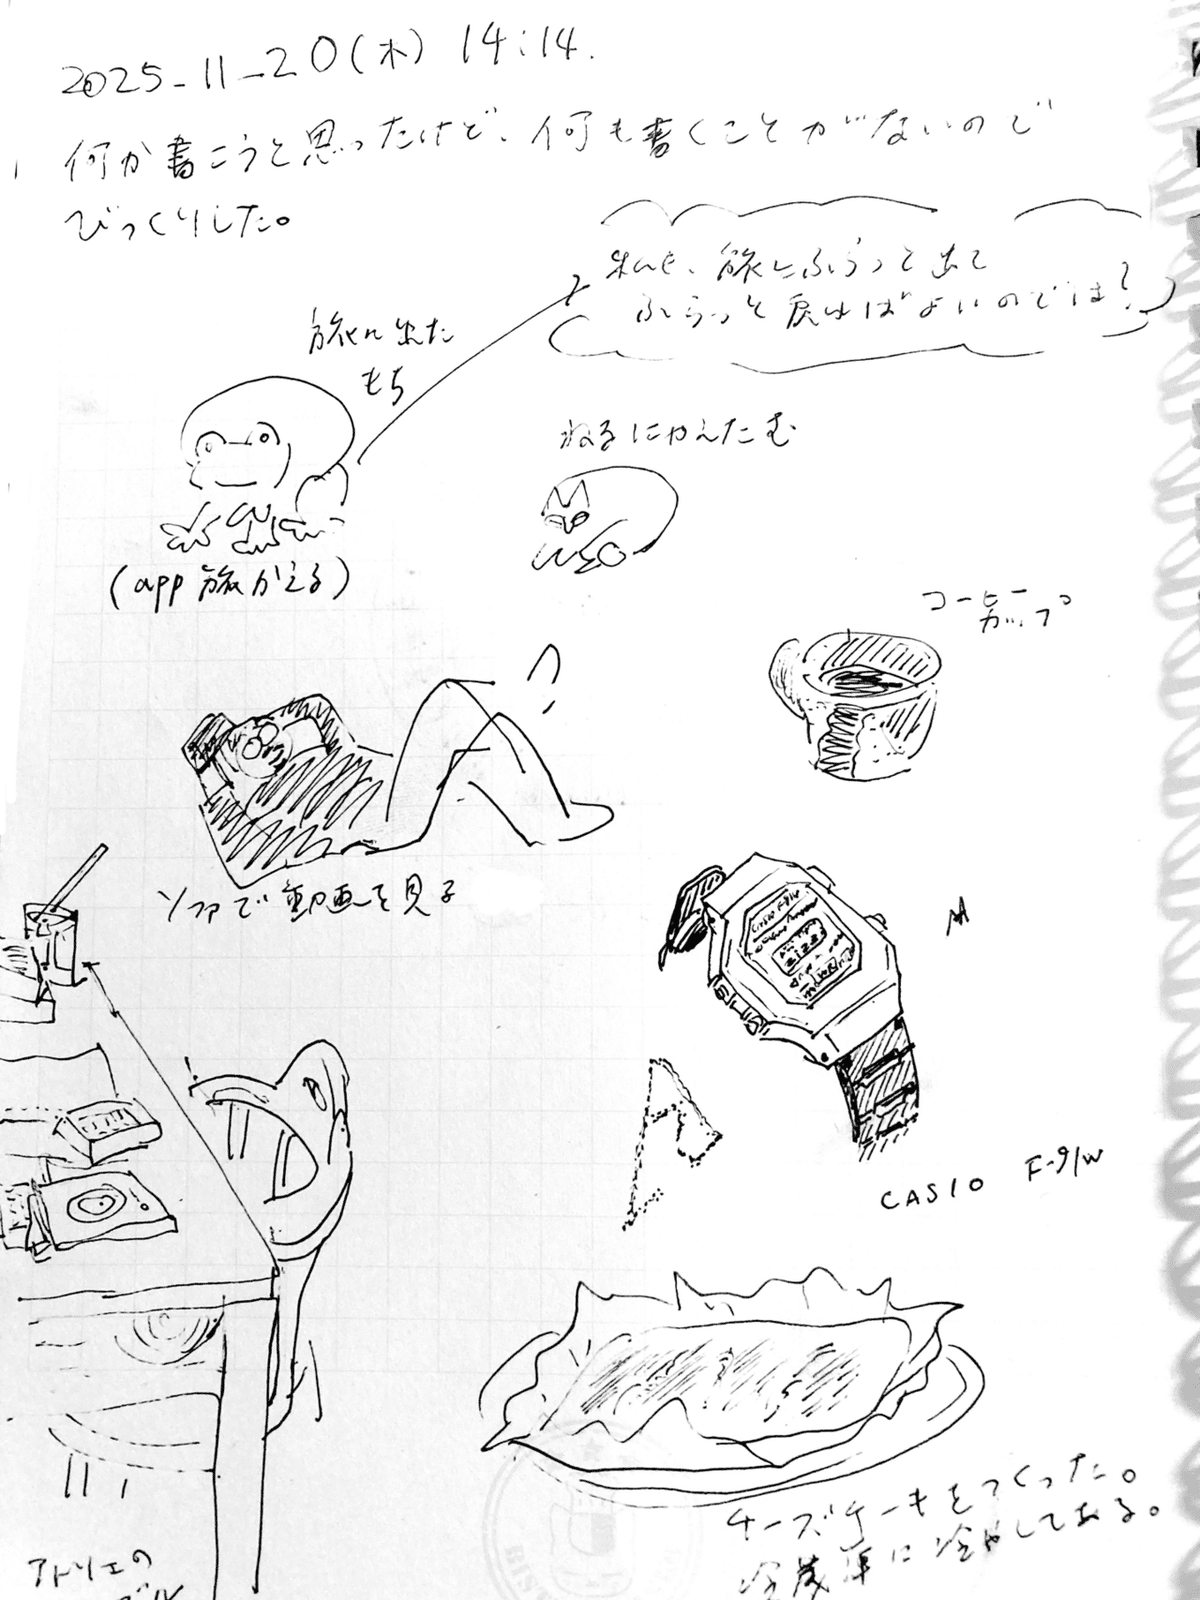 2025-11-20(木) 14:14.
何か書こうと思ったけど、何も書くことがないので
びっくりした。
私も、旅にふらっと出て
ふらっと戻ればよいのでは?
旅に出た
もち
ねるにゃんたむ
(app 旅かえる)
コーヒー
カップ
ソファで動画を見る
CASIO F-91W
CASIO F-91W
チーズケーキをつくった。
冷蔵庫に冷やしてある。
アトリエの